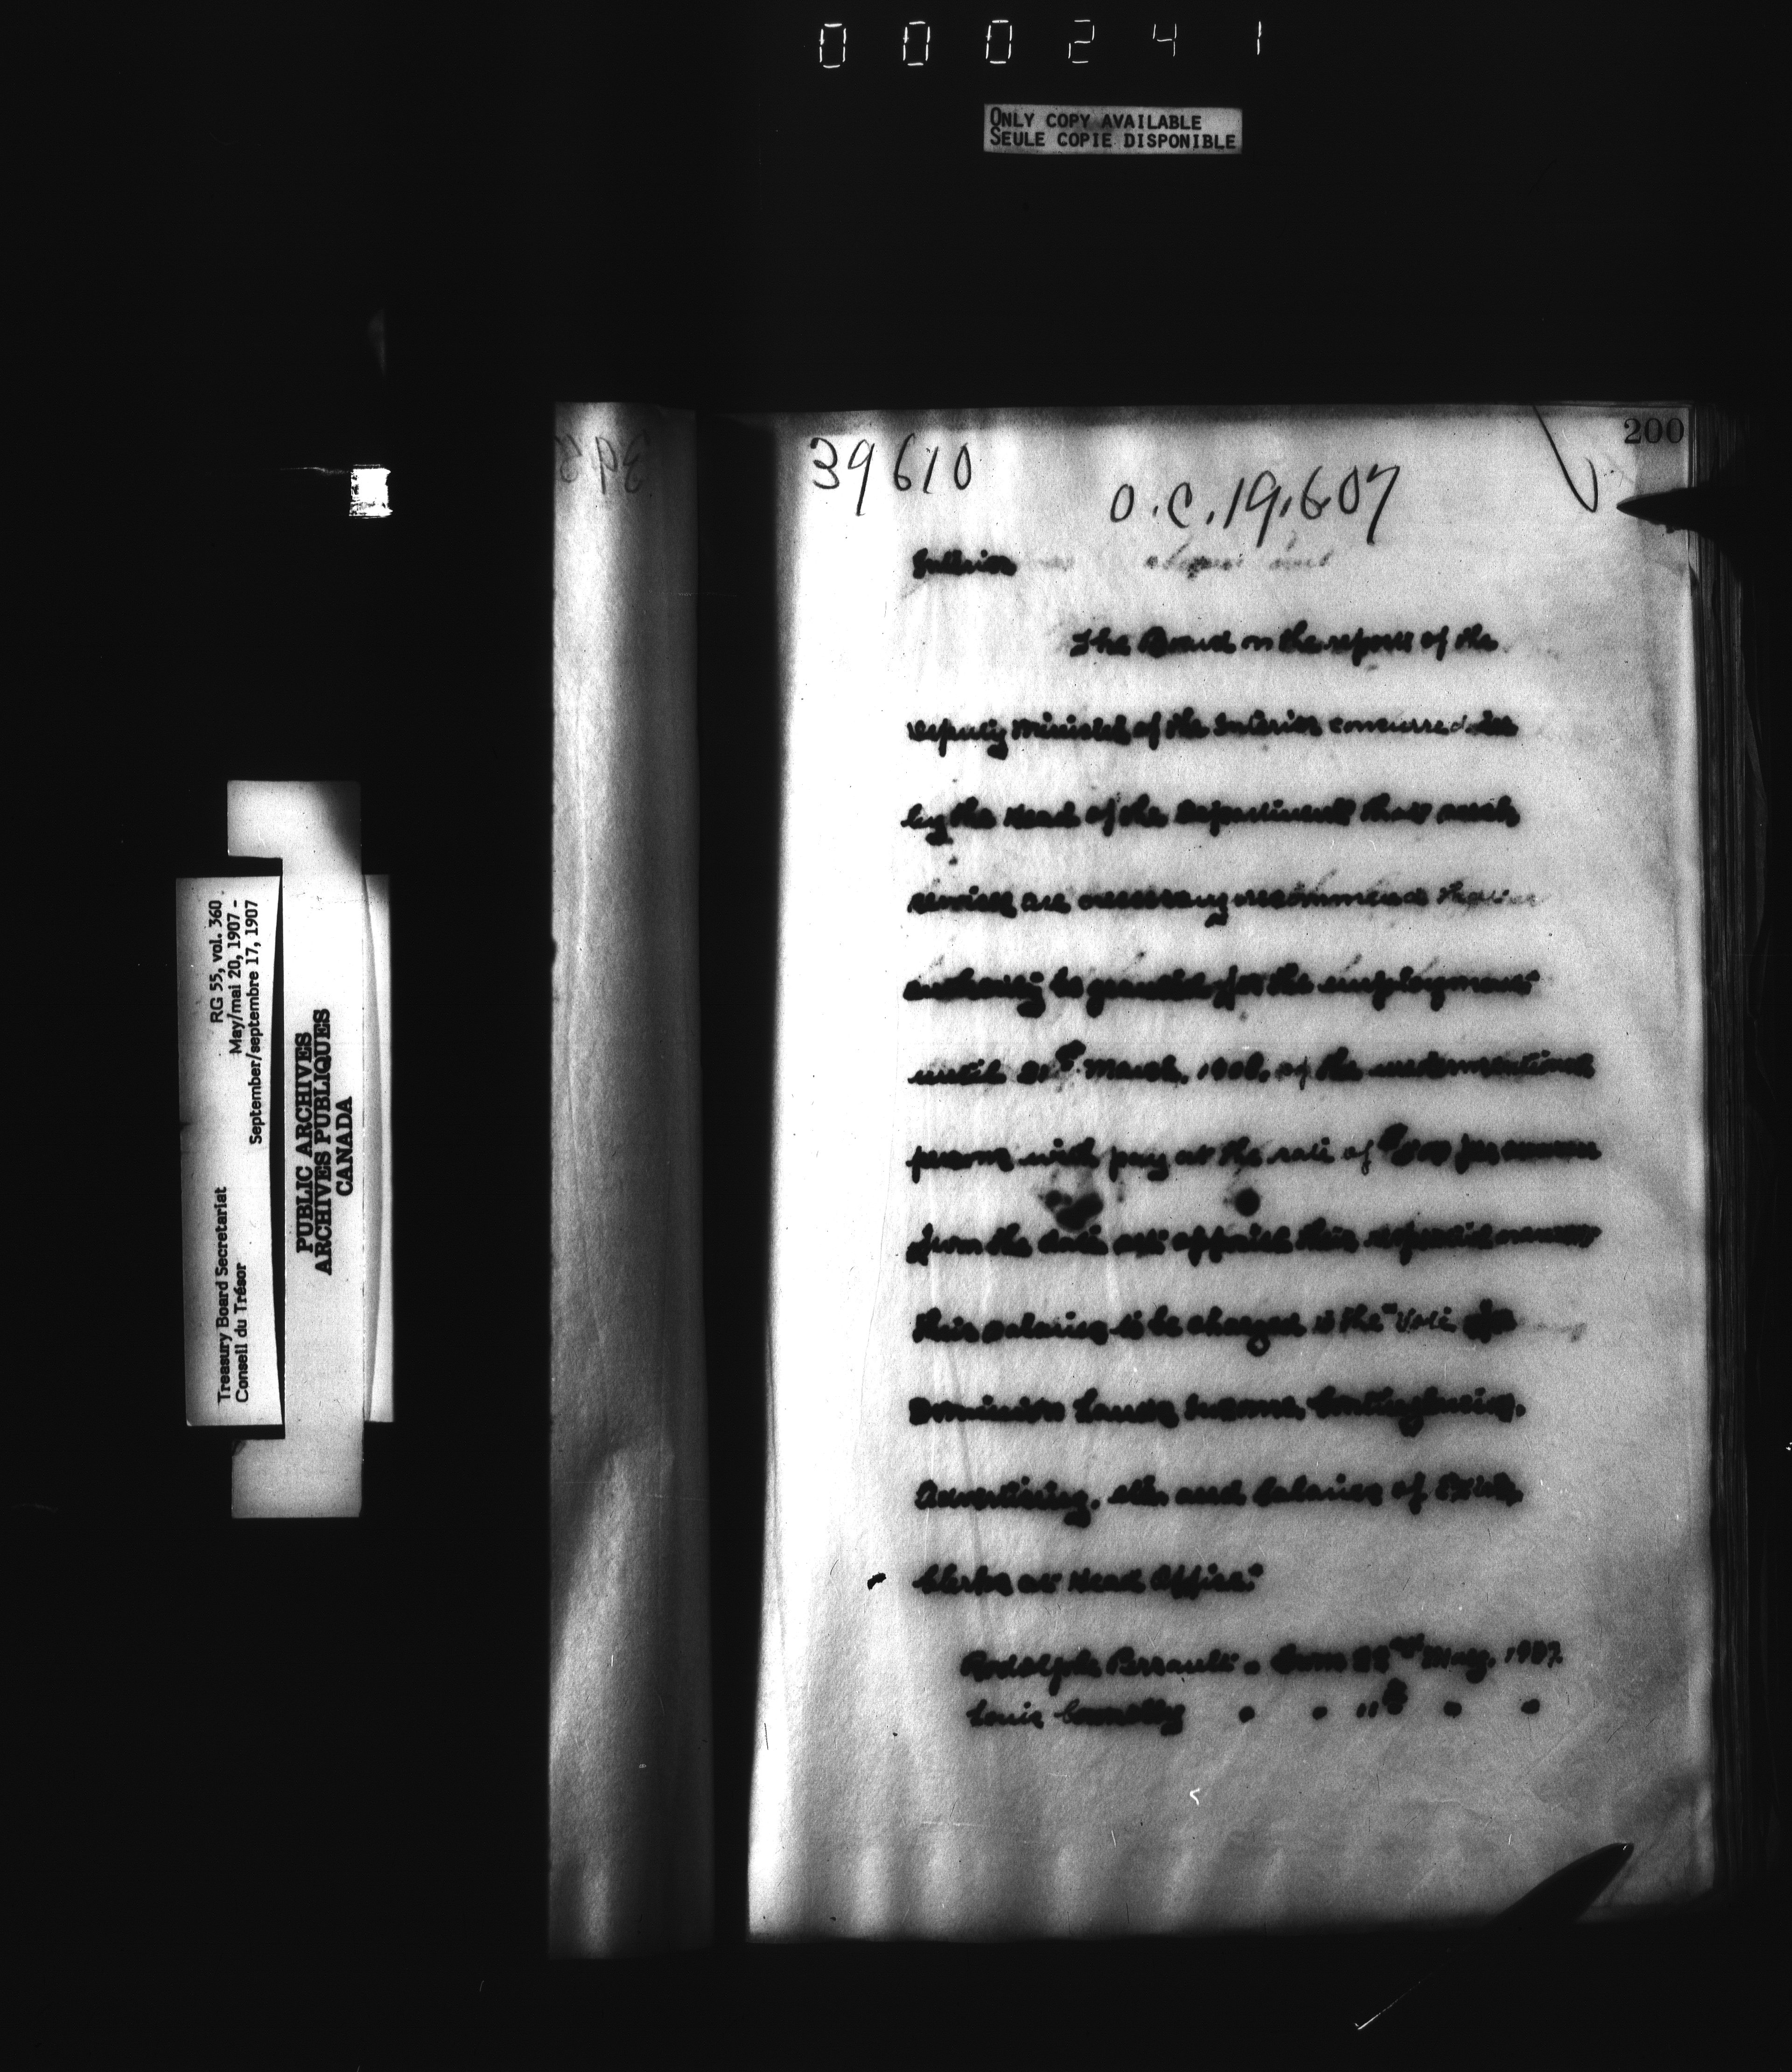 000241
ONLY COPY AVAILABLE
SEULE COPIE DISPONIBLE
200
39610
O.C. 19,607
Interior
The Board on the report of the
Deputy Minister of the Interior concurred in
by the Head of the Department that such
services are necessary recommend that
authority be granted for the employment
until 31st March, 1908, of the undermentioned
persons with pay at the rate of $500 per annum
from the date set opposite their respective names
their salaries to be charged to the "Vote for
Dominion Lands Income, Contingencies,
Advertising, etc. and Salaries of Extra
Clerks at Head Office."
Rodolphe Perrault " from 22nd May, 1907.
Louis Connolly " " 11th " "
RG 55, vol. 360
May/mai 20, 1907 -
September/septembre 17, 1907
Treasury Board Secretariat
Conseil du Trésor
PUBLIC ARCHIVES
ARCHIVES PUBLIQUES
CANADA